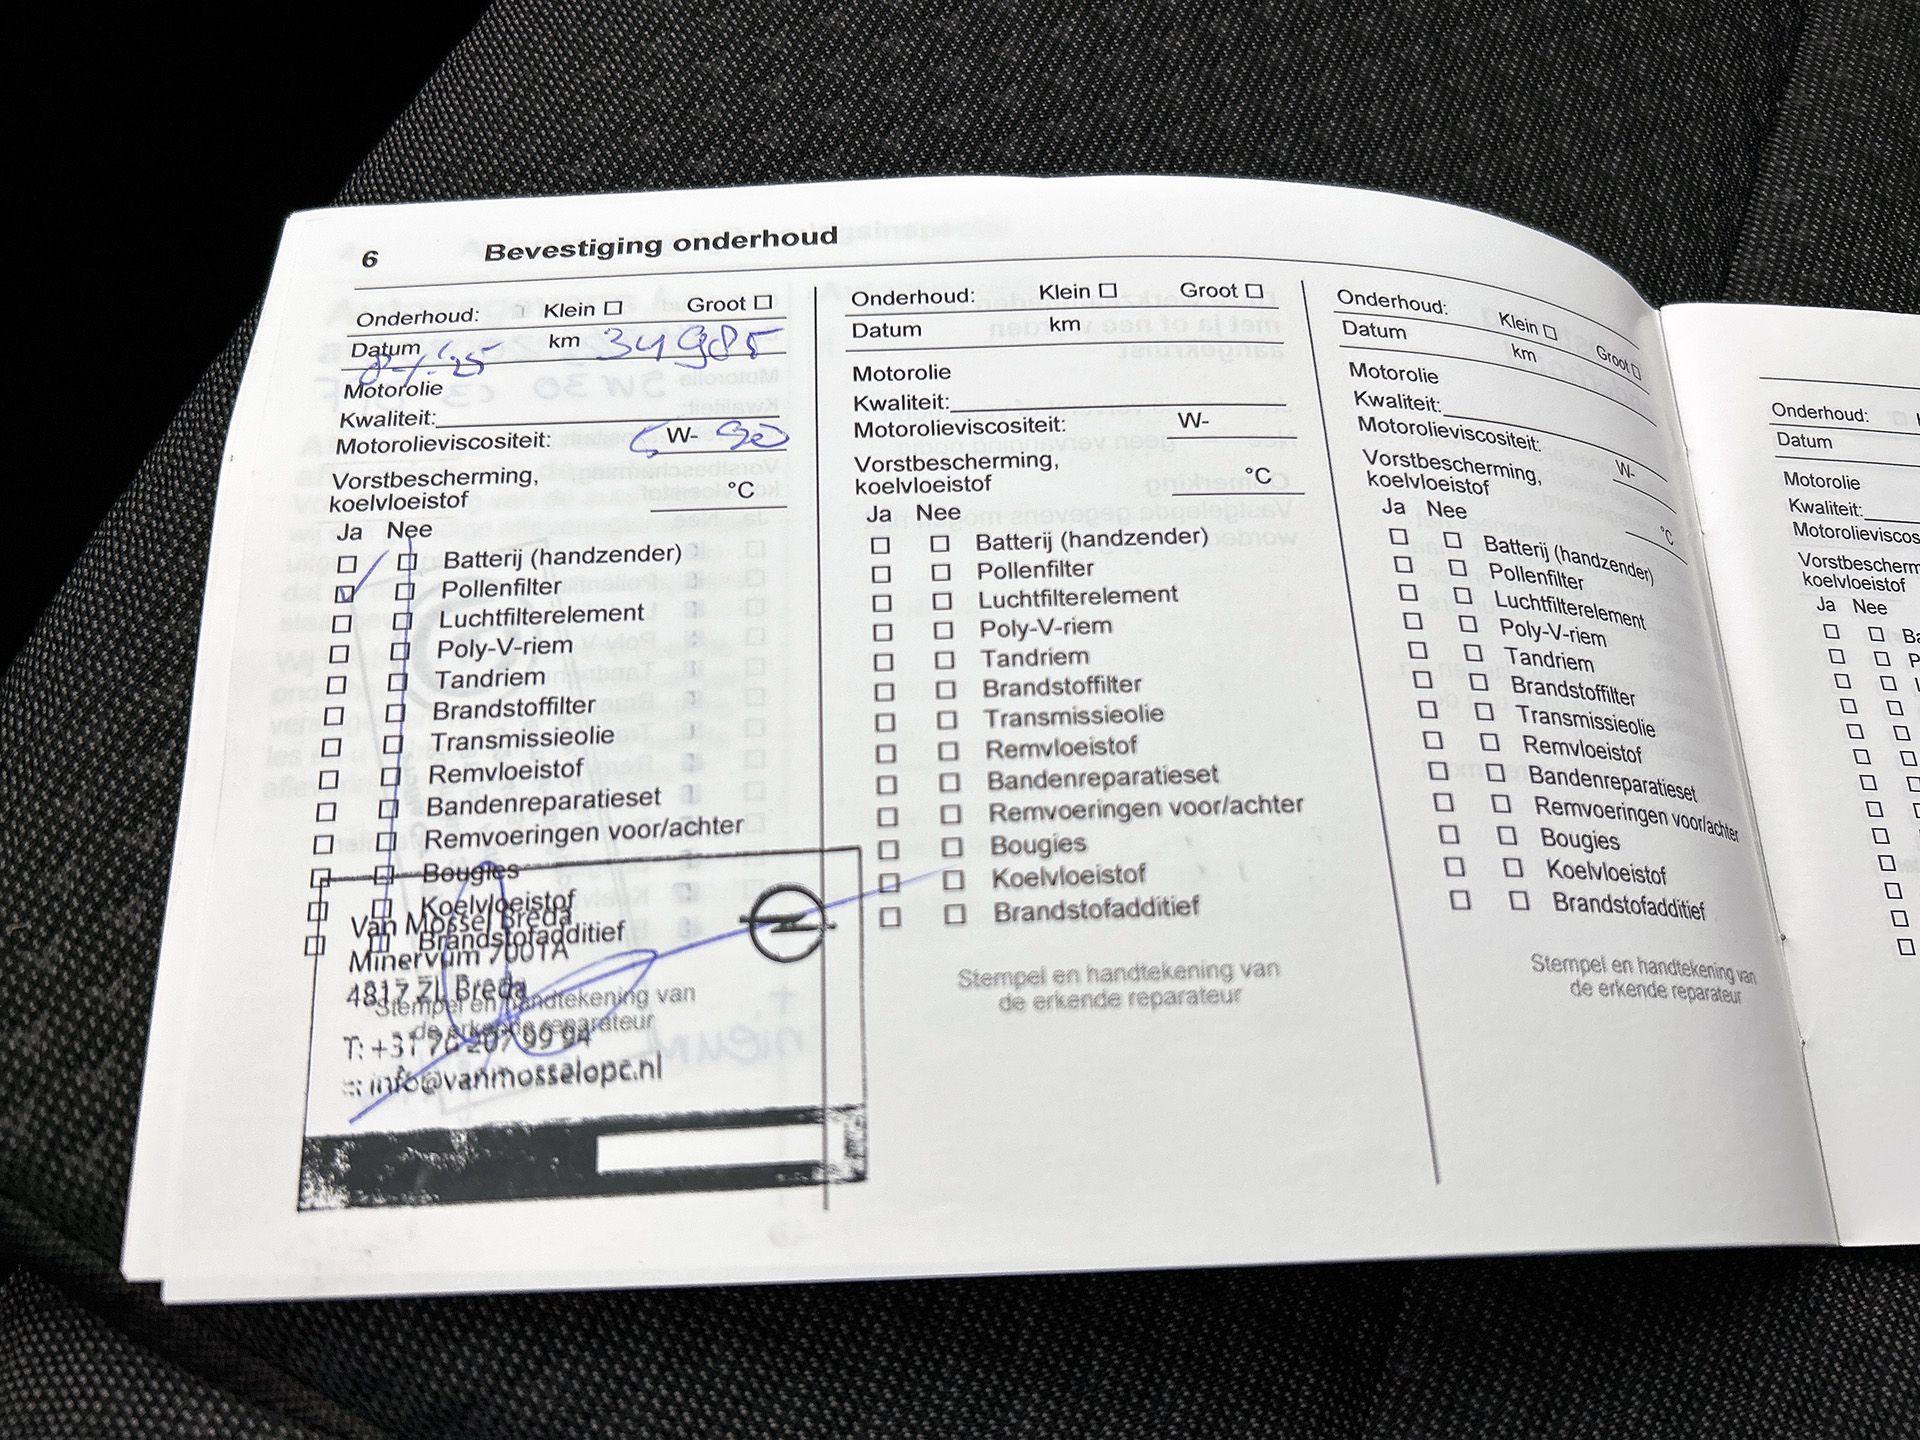 6 Bevestiging onderhoud
Onderhoud: Klein Groot
Datum km 34985
Motorolie
Kwaliteit:
Motorolieviscositeit: W-
Vorstbescherming,
koelvloeistof °C
Ja Nee
Batterij (handzender)
Pollenfilter
Luchtfilterelement
Poly-V-riem
Tandriem
Brandstoffilter
Transmissieolie
Remvloeistof
Bandenreparatieset
Remvoeringen voor/achter
Bougies
Koelvloeistof
Brandstofadditief
Stempel en handtekening van
de erkende reparateur
Van Mossel Breda
Minervum 7001A
4817 ZL Breda
T: +31 76 207 99 94
info@vanmosselopc.nl
Onderhoud: Klein Groot
Datum km
Motorolie
Kwaliteit:
Motorolieviscositeit: W-
Vorstbescherming,
koelvloeistof °C
Ja Nee
Batterij (handzender)
Pollenfilter
Luchtfilterelement
Poly-V-riem
Tandriem
Brandstoffilter
Transmissieolie
Remvloeistof
Bandenreparatieset
Remvoeringen voor/achter
Bougies
Koelvloeistof
Brandstofadditief
Stempel en handtekening van
de erkende reparateur
Onderhoud: Klein Groot
Datum km
Motorolie
Kwaliteit:
Motorolieviscositeit: W-
Vorstbescherming,
koelvloeistof °C
Ja Nee
Batterij (handzender)
Pollenfilter
Luchtfilterelement
Poly-V-riem
Tandriem
Brandstoffilter
Transmissieolie
Remvloeistof
Bandenreparatieset
Remvoeringen voor/achter
Bougies
Koelvloeistof
Brandstofadditief
Stempel en handtekening van
de erkende reparateur
Onderhoud:
Datum
Motorolie
Kwaliteit:
koelvloeistof
Ja Nee